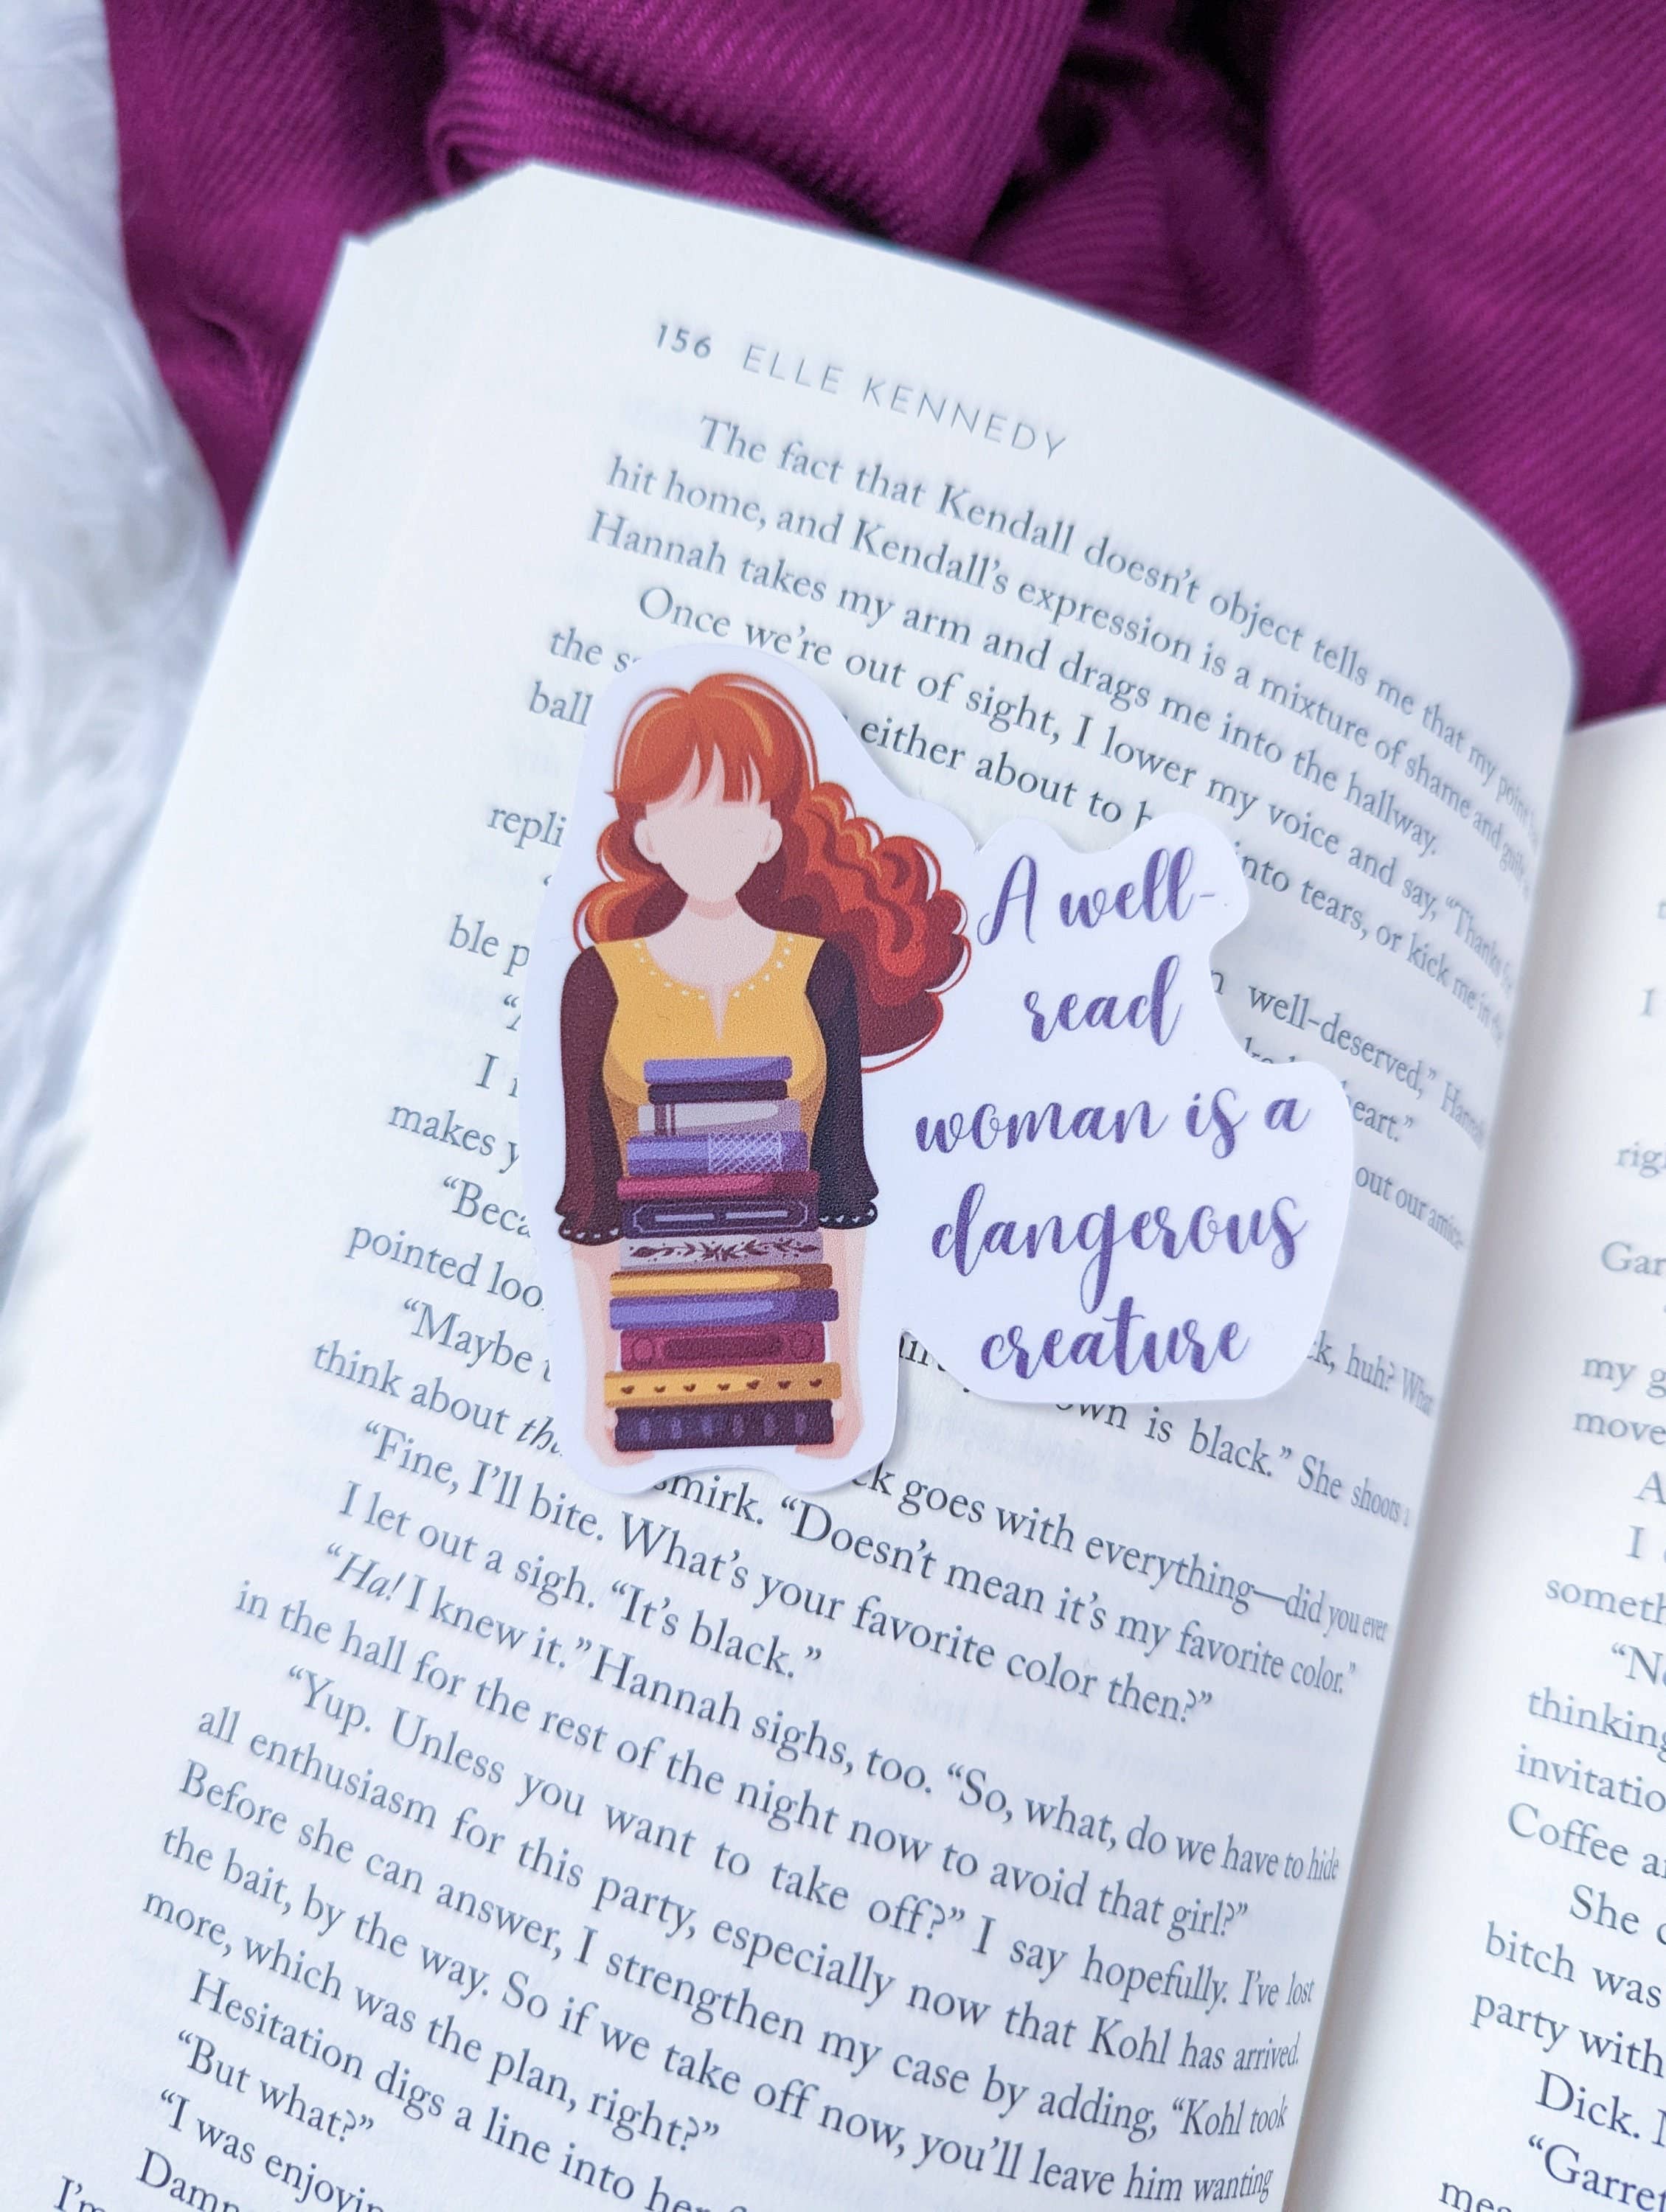 156 ELLE KENNEDY
The fact that Kendall doesn't object tells me that my point
hit home, and Kendall's expression is a mixture of shame and guilt
Hannah takes my arm and drags me into the hallway.
Once we're out of sight, I lower my voice and say, "Thanks for
the
either about to into tears, or kick me in the
ball
well-deserved," Hannah
repli
eart."
ble p
out our
I
makes y
"Beca
ck, huh? What
pointed loo
"Maybe own is black." She shoots
think about
smirk. "Doesn't mean it's my favorite color."
ck goes with everything—did you ever
"Fine, I'll bite. What's your favorite color then?"
I let out a sigh. "It's black."
"Ha! I knew it." Hannah sighs, too. "So, what, do we have to hide
in the hall for the rest of the night now to avoid that girl?"
"Yup. Unless you want to take off?" I say hopefully. I've lost
all enthusiasm for this party, especially now that Kohl has arrived.
Before she can answer, I strengthen my case by adding, "Kohl took
the bait, by the way. So if we take off now, you'll leave him wanting
more, which was the plan, right?"
Hesitation digs a line into her
"But what?"
"I was enjoyin
Damn
I'm
A well-
read
woman is a
dangerous
creature
I
righ
Gar
my g
move
A
I
someth
"No
thinking
invitatio
Coffee a
She
bitch was
party with
Dick.
"Garret
mea